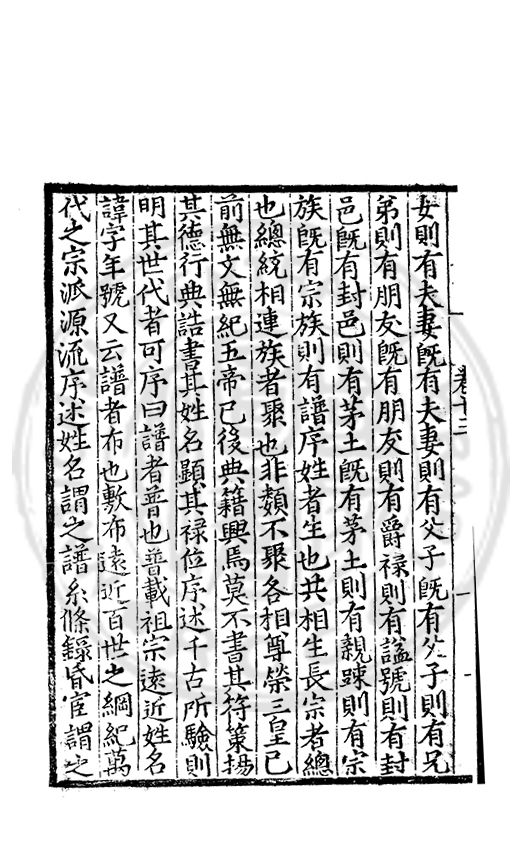 卷十三
女則有夫妻旣有夫妻則有父子旣有父子則有兄
弟則有朋友旣有朋友則有爵祿則有謚號則有封
邑旣有封邑則有茅土旣有茅土則有親踈則有宗
族旣有宗族則有譜序姓者生也共相生長宗者總
也總統相連族者聚也非類不聚各相尊榮三皇已
前無文無紀五帝已後典籍興焉莫不書其符䇿揚
其德行典誥書其姓名顯其禄位序述千古所驗則
明其世代者可序曰譜者普也普載祖宗遠近姓名
諱字年號又云譜者布也敷布遠近百世之綱紀萬
代之宗派源流序述姓名謂之譜系條錄昏宦謂之